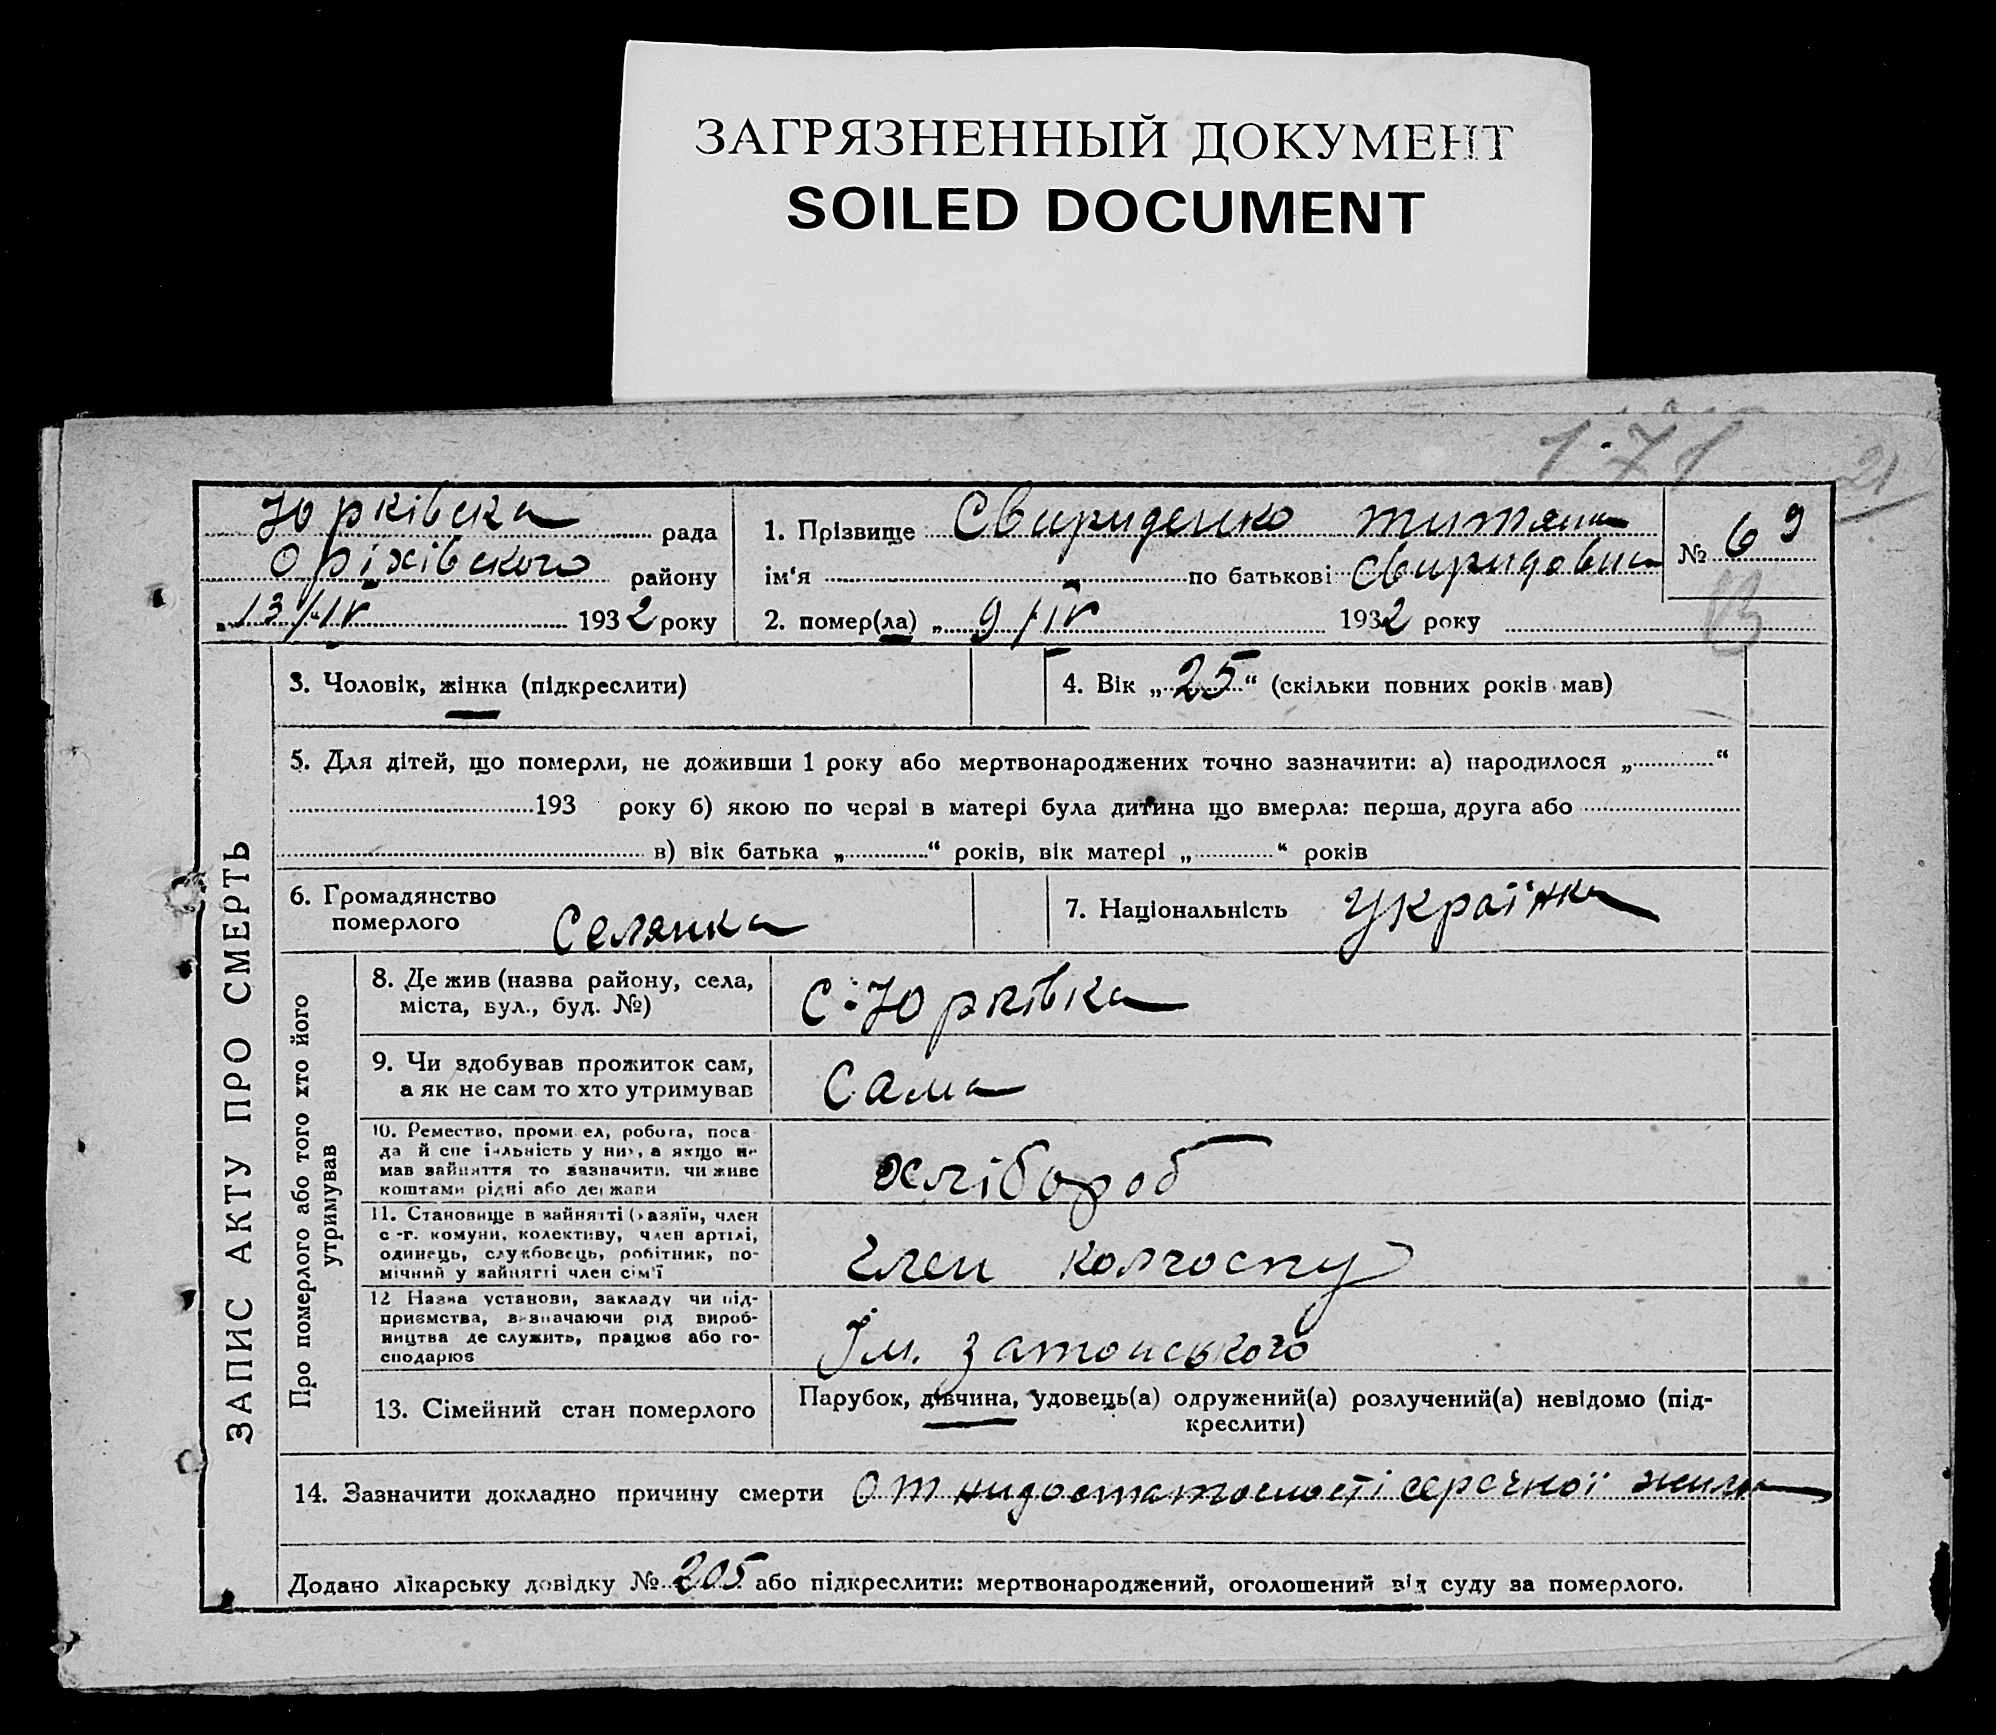 ЗАГРЯЗНЕННЫЙ ДОКУМЕНТ
SOILED DOCUMENT
1·71
21
Юрківска рада
Оріхівского району
„13/IV 1932 року
1. Прізвище Свириденко титяна
ім‘я по батькові Свиридовна
2. помер(ла) „ 9/IV 1932 року
№ 69
ЗАПИС АКТУ ПРО СМЕРТЬ
3. Чоловік, жінка (підкреслити)
4. Вік „25“ (скільки повних років мав)
5. Для дітей, що померли, не доживши 1 року або мертвонароджених точно зазначити: а) народилося „ “
193 року б) якою по черзі в матері була дитина що вмерла: перша, друга або
в) вік батька „ “ років, вік матері „ “ років
6. Громадянство
померлого Селянка
7. Національність Українка
Про померлого або того хто його
утримував
8. Де жив (назва району, села,
міста, вул., буд. №)
с. Юрківка
9. Чи здобував прожиток сам,
а як не сам то хто утримував
Сама
10. Ремество, промисел, робота, поса-
да й спеціяльність у них, а якщо не
мав зайняття то зазначити, чи живе
коштами рідні або держави
хлібороб
11. Становище в зайнятті (хазяїн, член
с.-г. комуни, колективу, член артілі,
одинець, службовець, робітник, по-
мічний у зайнятті член сім'ї
член колгоспу
12. Назва установи, закладу чи під-
приємства, визначаючи рід вироб-
ництва де служить, працює або го-
сподарює
Ім. затонського
13. Сімейний стан померлого
Парубок, дівчина, удовець(а) одружений(а) розлучений(а) невідомо (під-
креслити)
14. Зазначити докладно причину смерти От сердечної жили
Додано лікарську довідку № 205 або підкреслити: мертвонароджений, оголошений від суду за померлого.